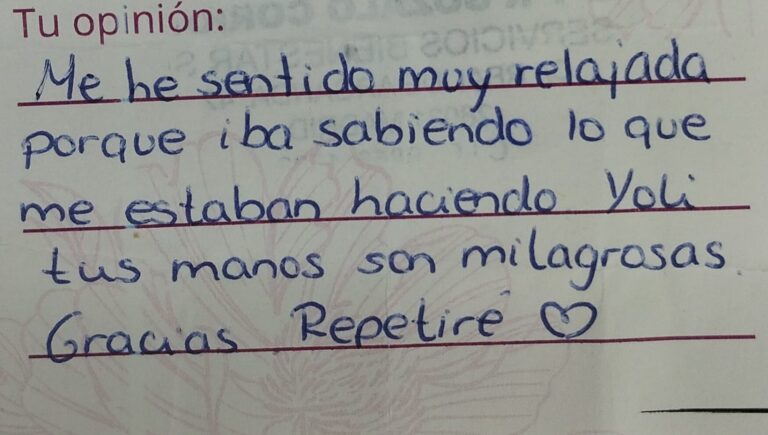 Tu opinión:
Me he sentido muy relajada
porque iba sabiendo lo que
me estaban haciendo Yoli
tus manos son milagrosas.
Gracias Repetiré ♡